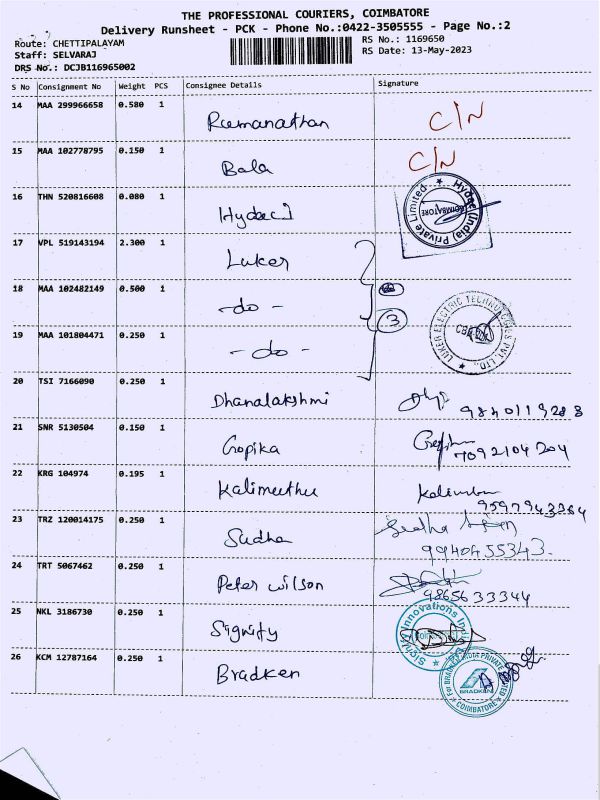 THE PROFESSIONAL COURIERS, COIMBATORE
Delivery Runsheet - PCK - Phone No.:0422-3505555 - Page No.:2
Route: CHETTIPALAYAM
RS No.: 1169650
Staff: SELVARAJ
RS Date: 13-May-2023
DRS No.: DCJB116965002
S No Consignment No Weight PCS Consignee Details Signature
14 MAA 299966658 0.580 1 Ramanathan C/N
15 MAA 102778795 0.150 1 Bala C/N
16 THN 520816608 0.080 1
Hydac (India) Private Limited
COIMBATORE
17 VPL 519143194 2.300 1 Luker
18 MAA 102482149 0.500 1 -do-
3
19 MAA 101804471 0.250 1 -do-
LUKER ELECTRIC TECHNOLOGIES PVT LTD.,
20 TSI 7166090 0.250 1 Dhanalakshmi
9840119288
21 SNR 5130504 0.150 1 Gopika
7092104204
22 KRG 104974 0.195 1 Kalimuthu
23 TRZ 120014175 0.250 1 Sudha
9940455343.
24 TRT 5067462 0.250 1 Peter Wilson
9865633344
25 NKL 3186730 0.250 1 Signity
Innovations
26 KCM 12787164 0.250 1 Bradken
For BRADKEN INDIA PRIVATE
BRADKEN
COIMBATORE